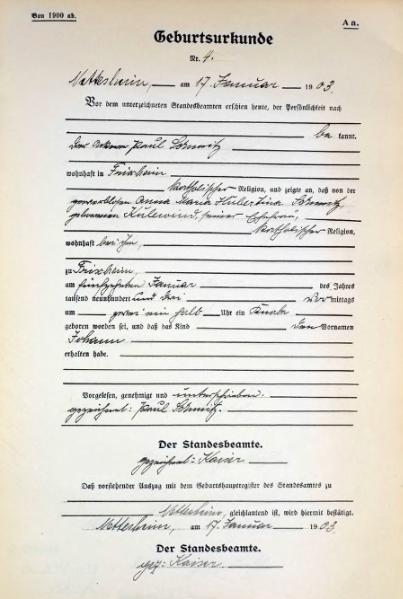 Von 1900 ab.
A a.
Geburtsurkunde
Nr. 4.
am 17. Januar 1903.
Vor dem unterzeichneten Standesbeamten erschien heute, der Persönlichkeit nach
be kannt.
der Ackerer Paul Schmitz
wohnhaft in Frixheim
katholischer Religion, und zeigte an, daß von der
Anna Maria Hubertina Schmitz
geborenen seiner Ehefrau,
katholischer Religion,
wohnhaft bei ihm,
zu Frixheim,
am fünfzehnten Januar des Jahres
tausend neunhundert und drei Vor mittags
um ein halb Uhr ein Knabe
geboren worden sei, und daß das Kind den Vornamen
Johann
erhalten habe.
Vorgelesen, genehmigt und unterschrieben.
gezeichnet: Paul Schmitz.
Der Standesbeamte.
gezeichnet: Kaiser
Daß vorstehender Auszug mit dem Geburtshauptregister des Standesamts zu
gleichlautend ist, wird hiermit bestätigt.
am 17. Januar 1903.
Der Standesbeamte.
gez: Kaiser.